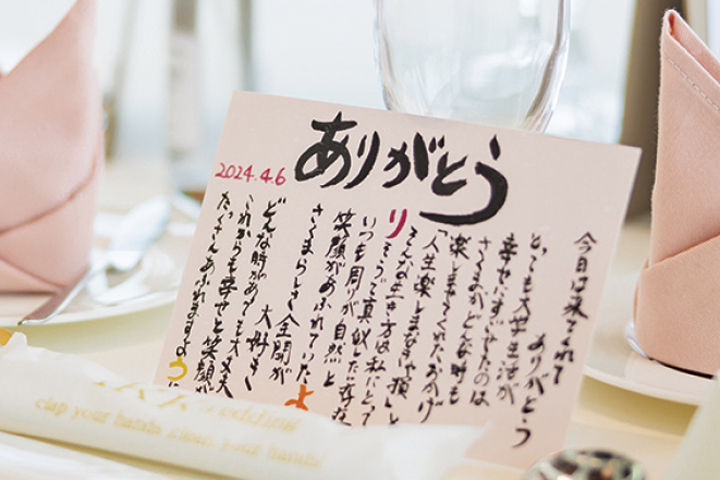 ありがとう
2024.4.6
今日は来てくれて
ありがとう
とっても大学生活が
幸せにすごせたのは
さくまがどんな時も
楽しませてくれたおかげ
「人生楽しまなきゃ損」と
り
そんな生き方は私にとって
そうで真似した存在
いつも周りが自然と
笑顔があふれていた
よ
さくまらしさ全開が
大好き
どんな時があっても大丈夫
これからも幸せと笑顔が
たくさんあふれますよ
うに
clap your hands clean your hands!